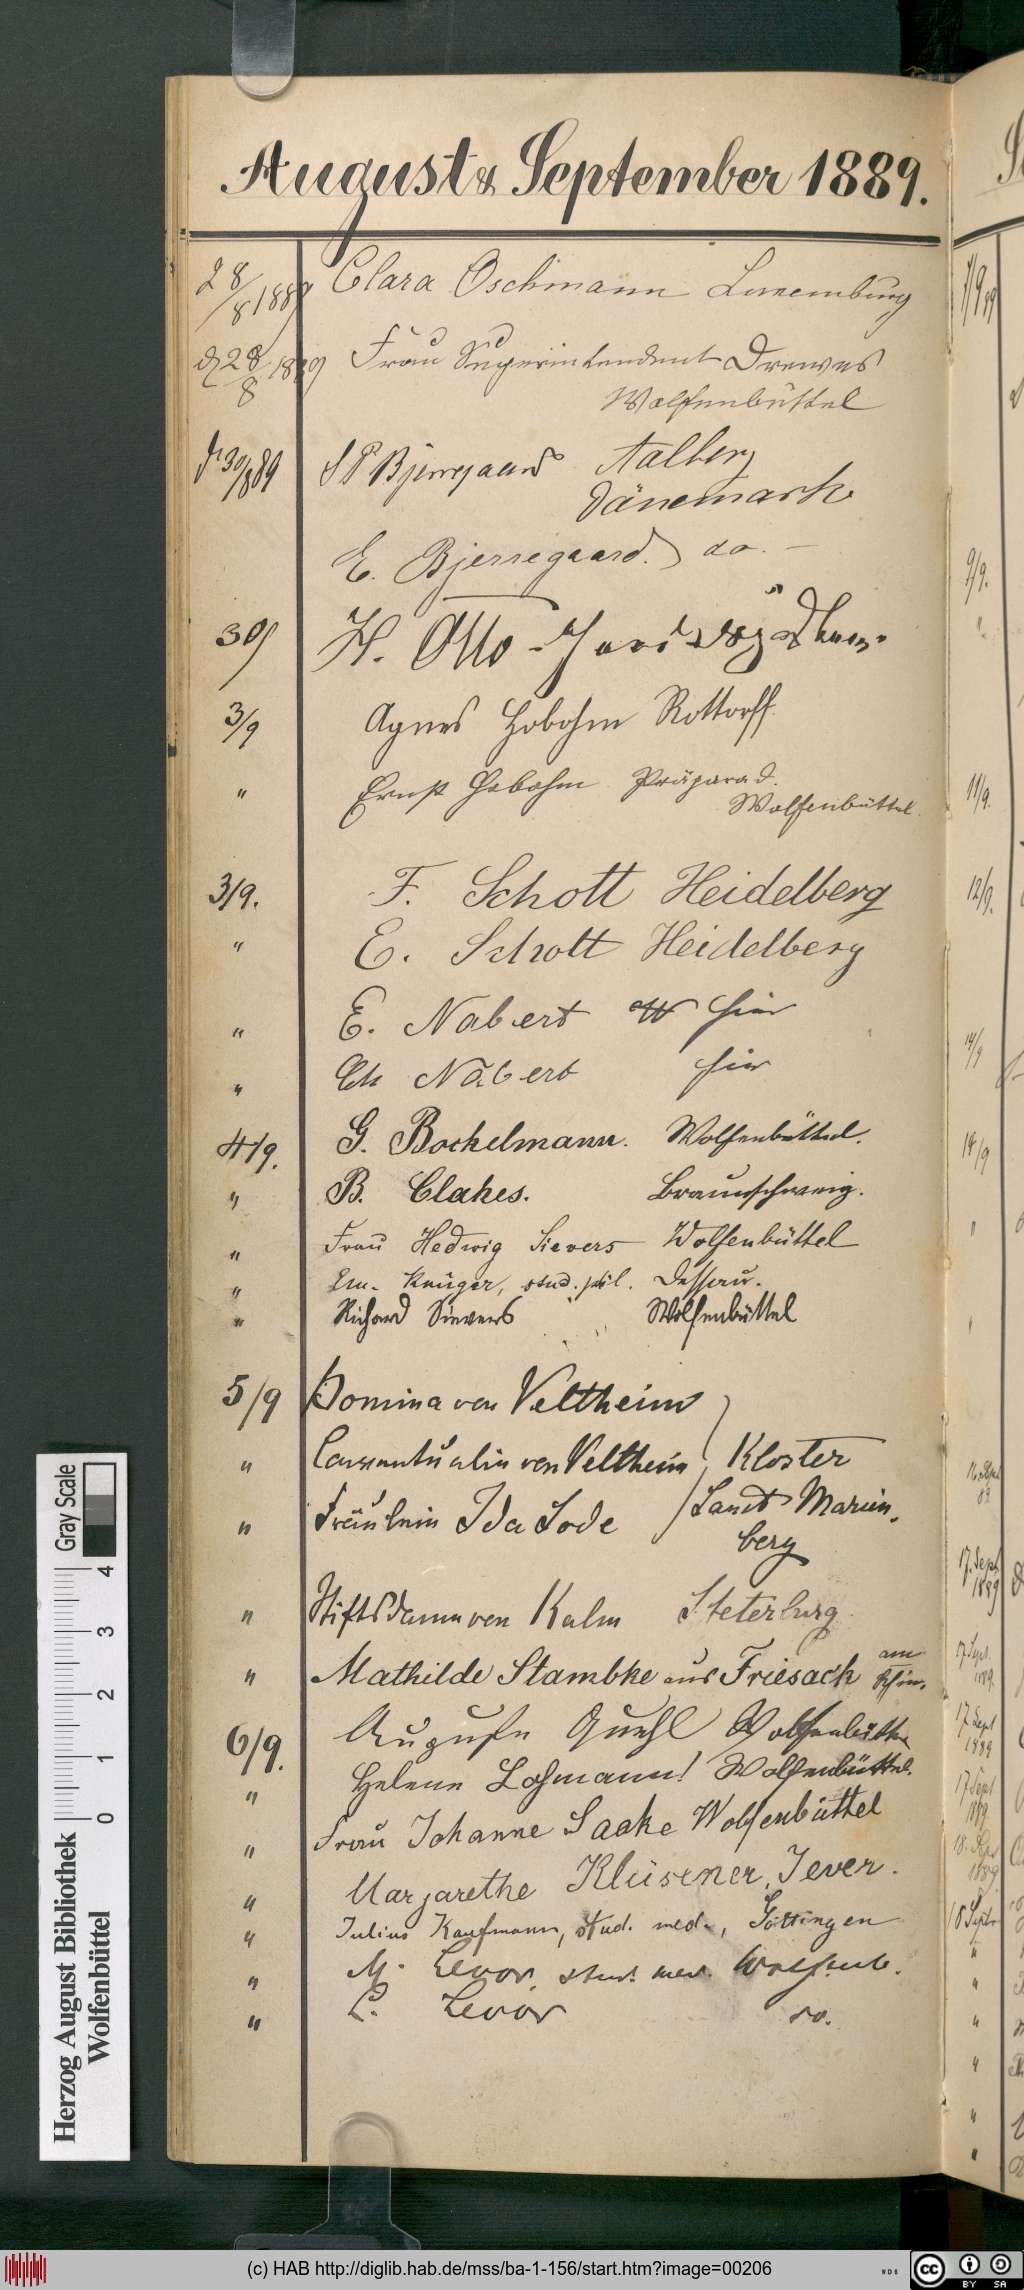 August & September 1889.
28/8 1889 Clara Oschmann Luxemburg
d 28/8 1889 Frau Superintendent Drewes
Wolfenbüttel
d. 30/8 89 S P Bjerregaard Aalborg
Dänemark
E. Bjerregaard. do. —
30/ H. Otto
3/9 Agnes Hobohm Rottorff
" Ernst Hobohm Präparand.
Wolfenbüttel
3/9. F. Schott Heidelberg
" E. Schott Heidelberg
" E. Nabert hier
" Ch Nabert hier
4/9. G. Bockelmann. Wolfenbüttel.
" B. Clakes. Braunschweig.
" Frau Hedwig Sievers Wolfenbüttel
" Em. Krüger, stud. phil. Dessau.
" Richard Sievers Wolfenbüttel
5/9 Domina von Veltheim
" Conventualin von Veltheim, Kloster
" Fräulein Ida Lode Sanct Marien-
berg
" Stiftsdame von Kalm Steterburg.
" Mathilde Stambke aus Friesack am
Rhin.
6/9. Auguste Quehl Wolfenbüttel
" Helene Lohmann! Wolfenbüttel.
" Frau Johanne Saake Wolfenbüttel
" Margarethe Klüsener, Jever.
" Julius Kaufmann, stud. med., Göttingen
" M. Levor, stud. med. Wolfenb.
" L. Levor do.
1/9 89
9/9.
"
11/9.
12/9.
14/9
14/9
"
17. Sept
1889
17. Sept.
1889.
17. Sept
1889
17. Sept
1889
18. Sept
1889
18 Septr
"
"
"
"
"
"
Gray Scale
0 1 2 3 4
Herzog August Bibliothek
Wolfenbüttel
(c) HAB http://diglib.hab.de/mss/ba-1-156/start.htm?image=00206
WDB
cc BY SA